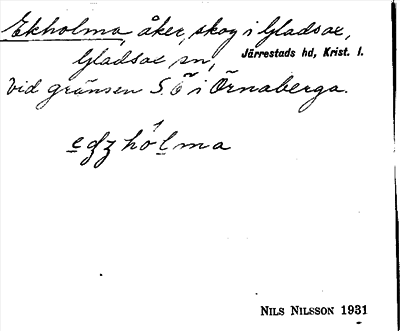 Ekholma, åker, skog i Gladsax,
Gladsax sn, Järrestads hd, Krist. l.
Vid gränsen S.Ö i Örnaberga.
hólma
NILS NILSSON 1931